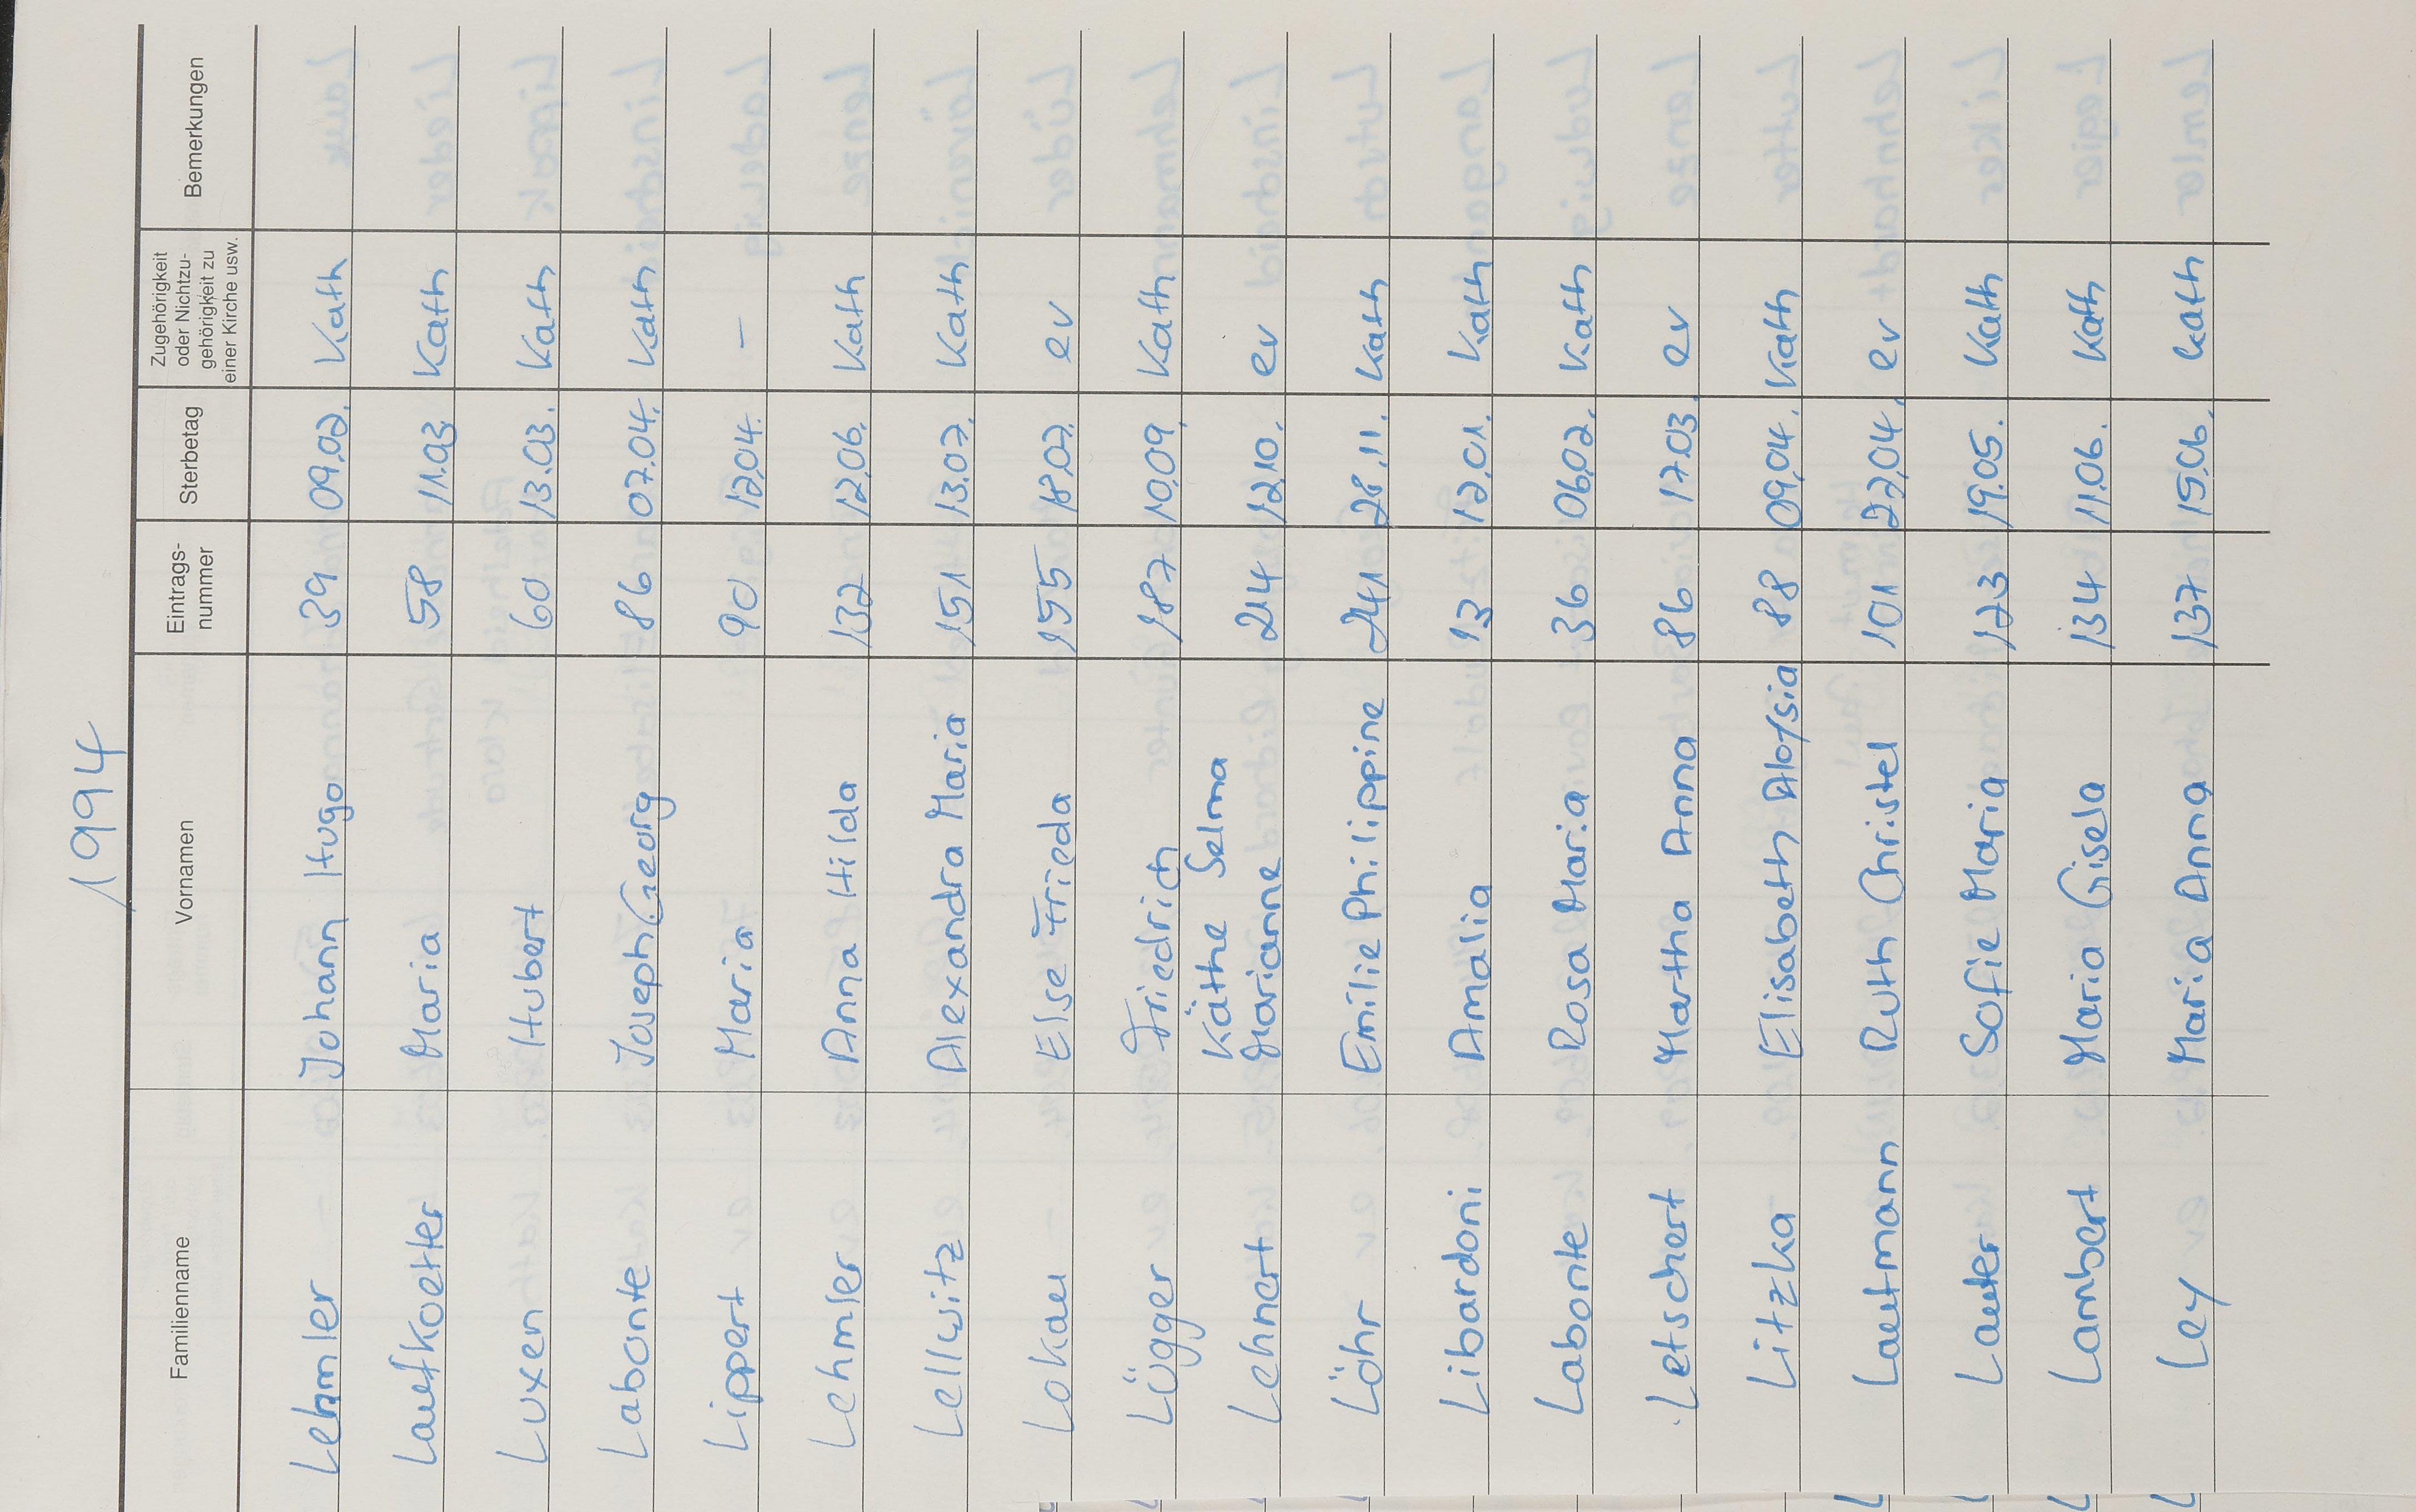 1994
Familienname Vornamen Eintrags-nummer Sterbetag Zugehörigkeit oder Nichtzu-gehörigkeit zu einer Kirche usw. Bemerkungen
Lehmler Johann Hugo 39 09.02. Kath
Lautkoetter Maria 58 11.03. Kath
Luxen Hubert 60 13.03. Kath
Labonte Joseph Georg 86 07.04. Kath
Lippert Maria 90 12.04. –
Lehmler Anna Hilda 132 12.06. Kath
Lellwitz Alexandra Maria 151 13.07. Kath
Lokau Else Frieda 155 18.07. ev
Lügger Friedrich 187 10.09. Kath
Lehnert Käthe Selma Marianne 214 12.10. ev
Löhr Emilie Philippine 241 28.11. Kath
Libardoni Amalia 13 12.01. Kath
Labonte Rosa Maria 36 06.02. Kath
Letschert Martha Anna 86 17.03. ev
Litzka Elisabeth Aloysia 88 09.04. Kath
Lautmann Ruth Christel 101 22.04. ev
Lauter Sofie Maria 123 19.05. Kath
Lambert Maria Gisela 134 11.06. Kath
Ley Maria Anna 137 15.06. Kath